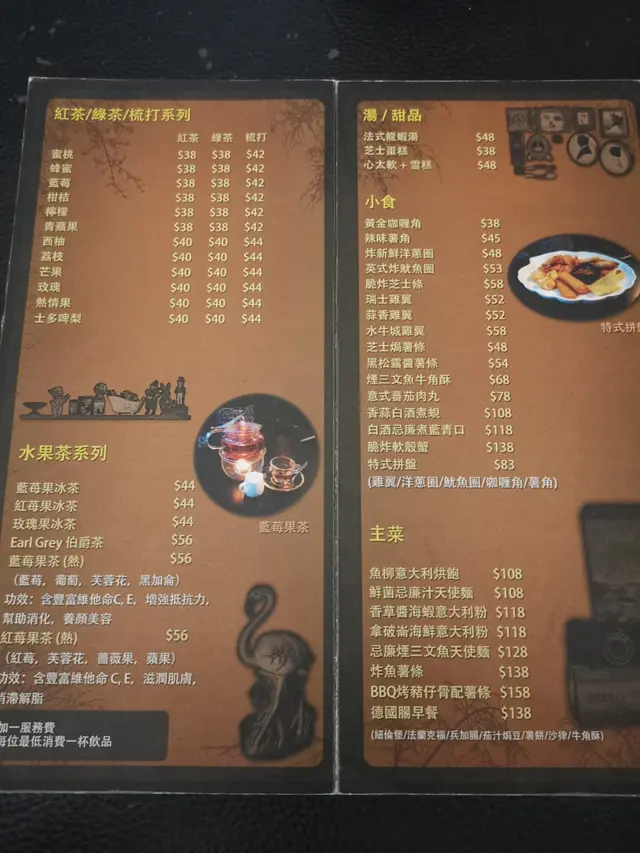 紅茶/綠茶/梳打系列
紅茶 綠茶 梳打
蜜桃 $38 $38 $42
蜂蜜 $38 $38 $42
藍莓 $38 $38 $42
柑桔 $38 $38 $42
檸檬 $38 $38 $42
青蘋果 $38 $38 $42
西柚 $40 $40 $44
荔枝 $40 $40 $44
芒果 $40 $40 $44
玫瑰 $40 $40 $44
熱情果 $40 $40 $44
士多啤梨 $40 $40 $44
水果茶系列
藍莓果冰茶 $44
紅莓果冰茶 $44
玫瑰果冰茶 $44
Earl Grey 伯爵茶 $56
藍莓果茶 (熱) $56
(藍莓, 葡萄, 芙蓉花, 黑加侖)
功效：含豐富維他命C, E, 增強抵抗力,
幫助消化, 養顏美容
紅莓果茶 (熱) $56
(紅莓, 芙蓉花, 薔薇果, 蘋果)
功效：含豐富維他命 C, E, 滋潤肌膚,
消滯解脂
藍莓果茶
加一服務費
每位最低消費一杯飲品
湯 / 甜品
法式龍蝦湯 $48
芝士蛋糕 $38
心太軟 + 雪糕 $48
小食
黃金咖喱角 $38
辣味薯角 $45
炸新鮮洋蔥圈 $48
英式炸魷魚圈 $53
脆炸芝士條 $58
瑞士雞翼 $52
蒜香雞翼 $52
水牛城雞翼 $58
芝士焗薯條 $48
黑松露醬薯條 $54
煙三文魚牛角酥 $68
意式蕃茄肉丸 $78
香蒜白酒煮蜆 $108
白酒忌廉煮藍青口 $118
脆炸軟殼蟹 $138
特式拼盤 $83
(雞翼/洋蔥圈/魷魚圈/咖喱角/薯角)
特式拼盤
主菜
魚柳意大利烘飽 $108
鮮菌忌廉汁天使麵 $108
香草醬海蝦意大利粉 $118
拿破崙海鮮意大利粉 $118
忌廉煙三文魚天使麵 $128
炸魚薯條 $138
BBQ烤豬仔骨配薯條 $158
德國腸早餐 $138
(紐倫堡/法蘭克福/兵加腸/茄汁焗豆/薯餅/沙律/牛角酥)